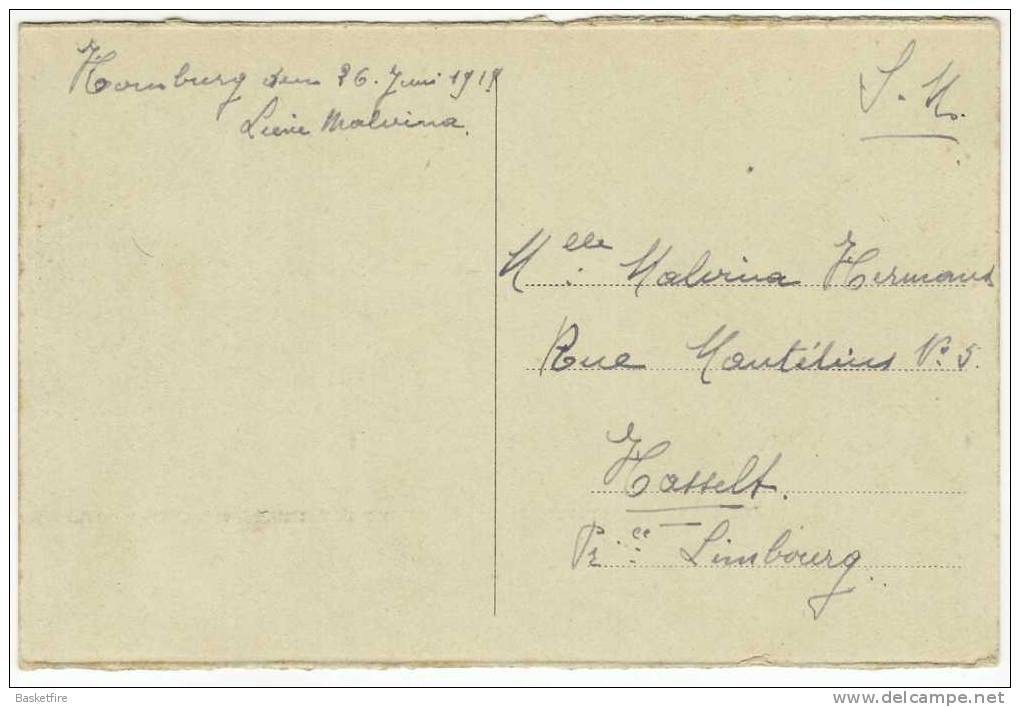 Homburg den 26. Juni 1919
Lieve Malvina.
S. M.
Mlle. Malvina Hermans
Rue Mantélius No 5.
Hasselt.
Pr.ce Limbourg.
Basketfire
www.delcampe.net